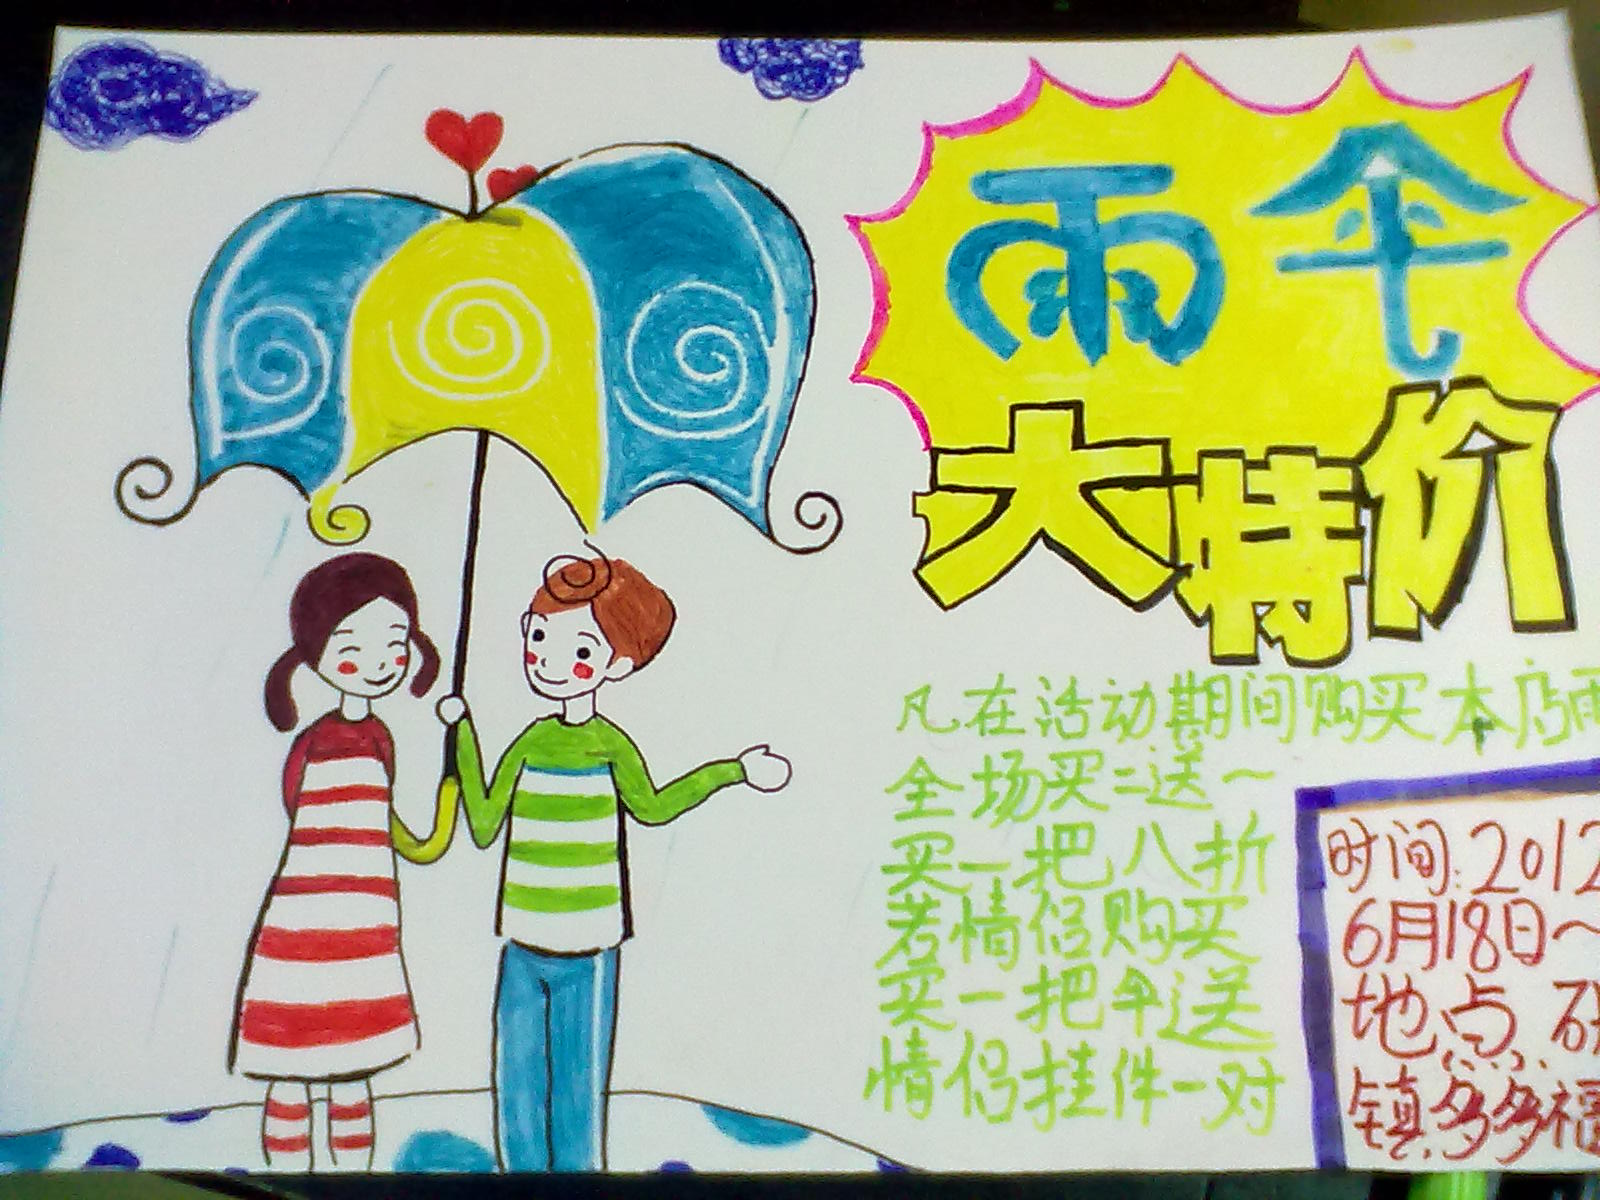 雨伞
大特价
凡在活动期间购买本店雨
全场买二送一
买一把八折
若情侣购买
买一把伞送
情侣挂件一对
时间:2012
6月18日~
地点:
镇多多福